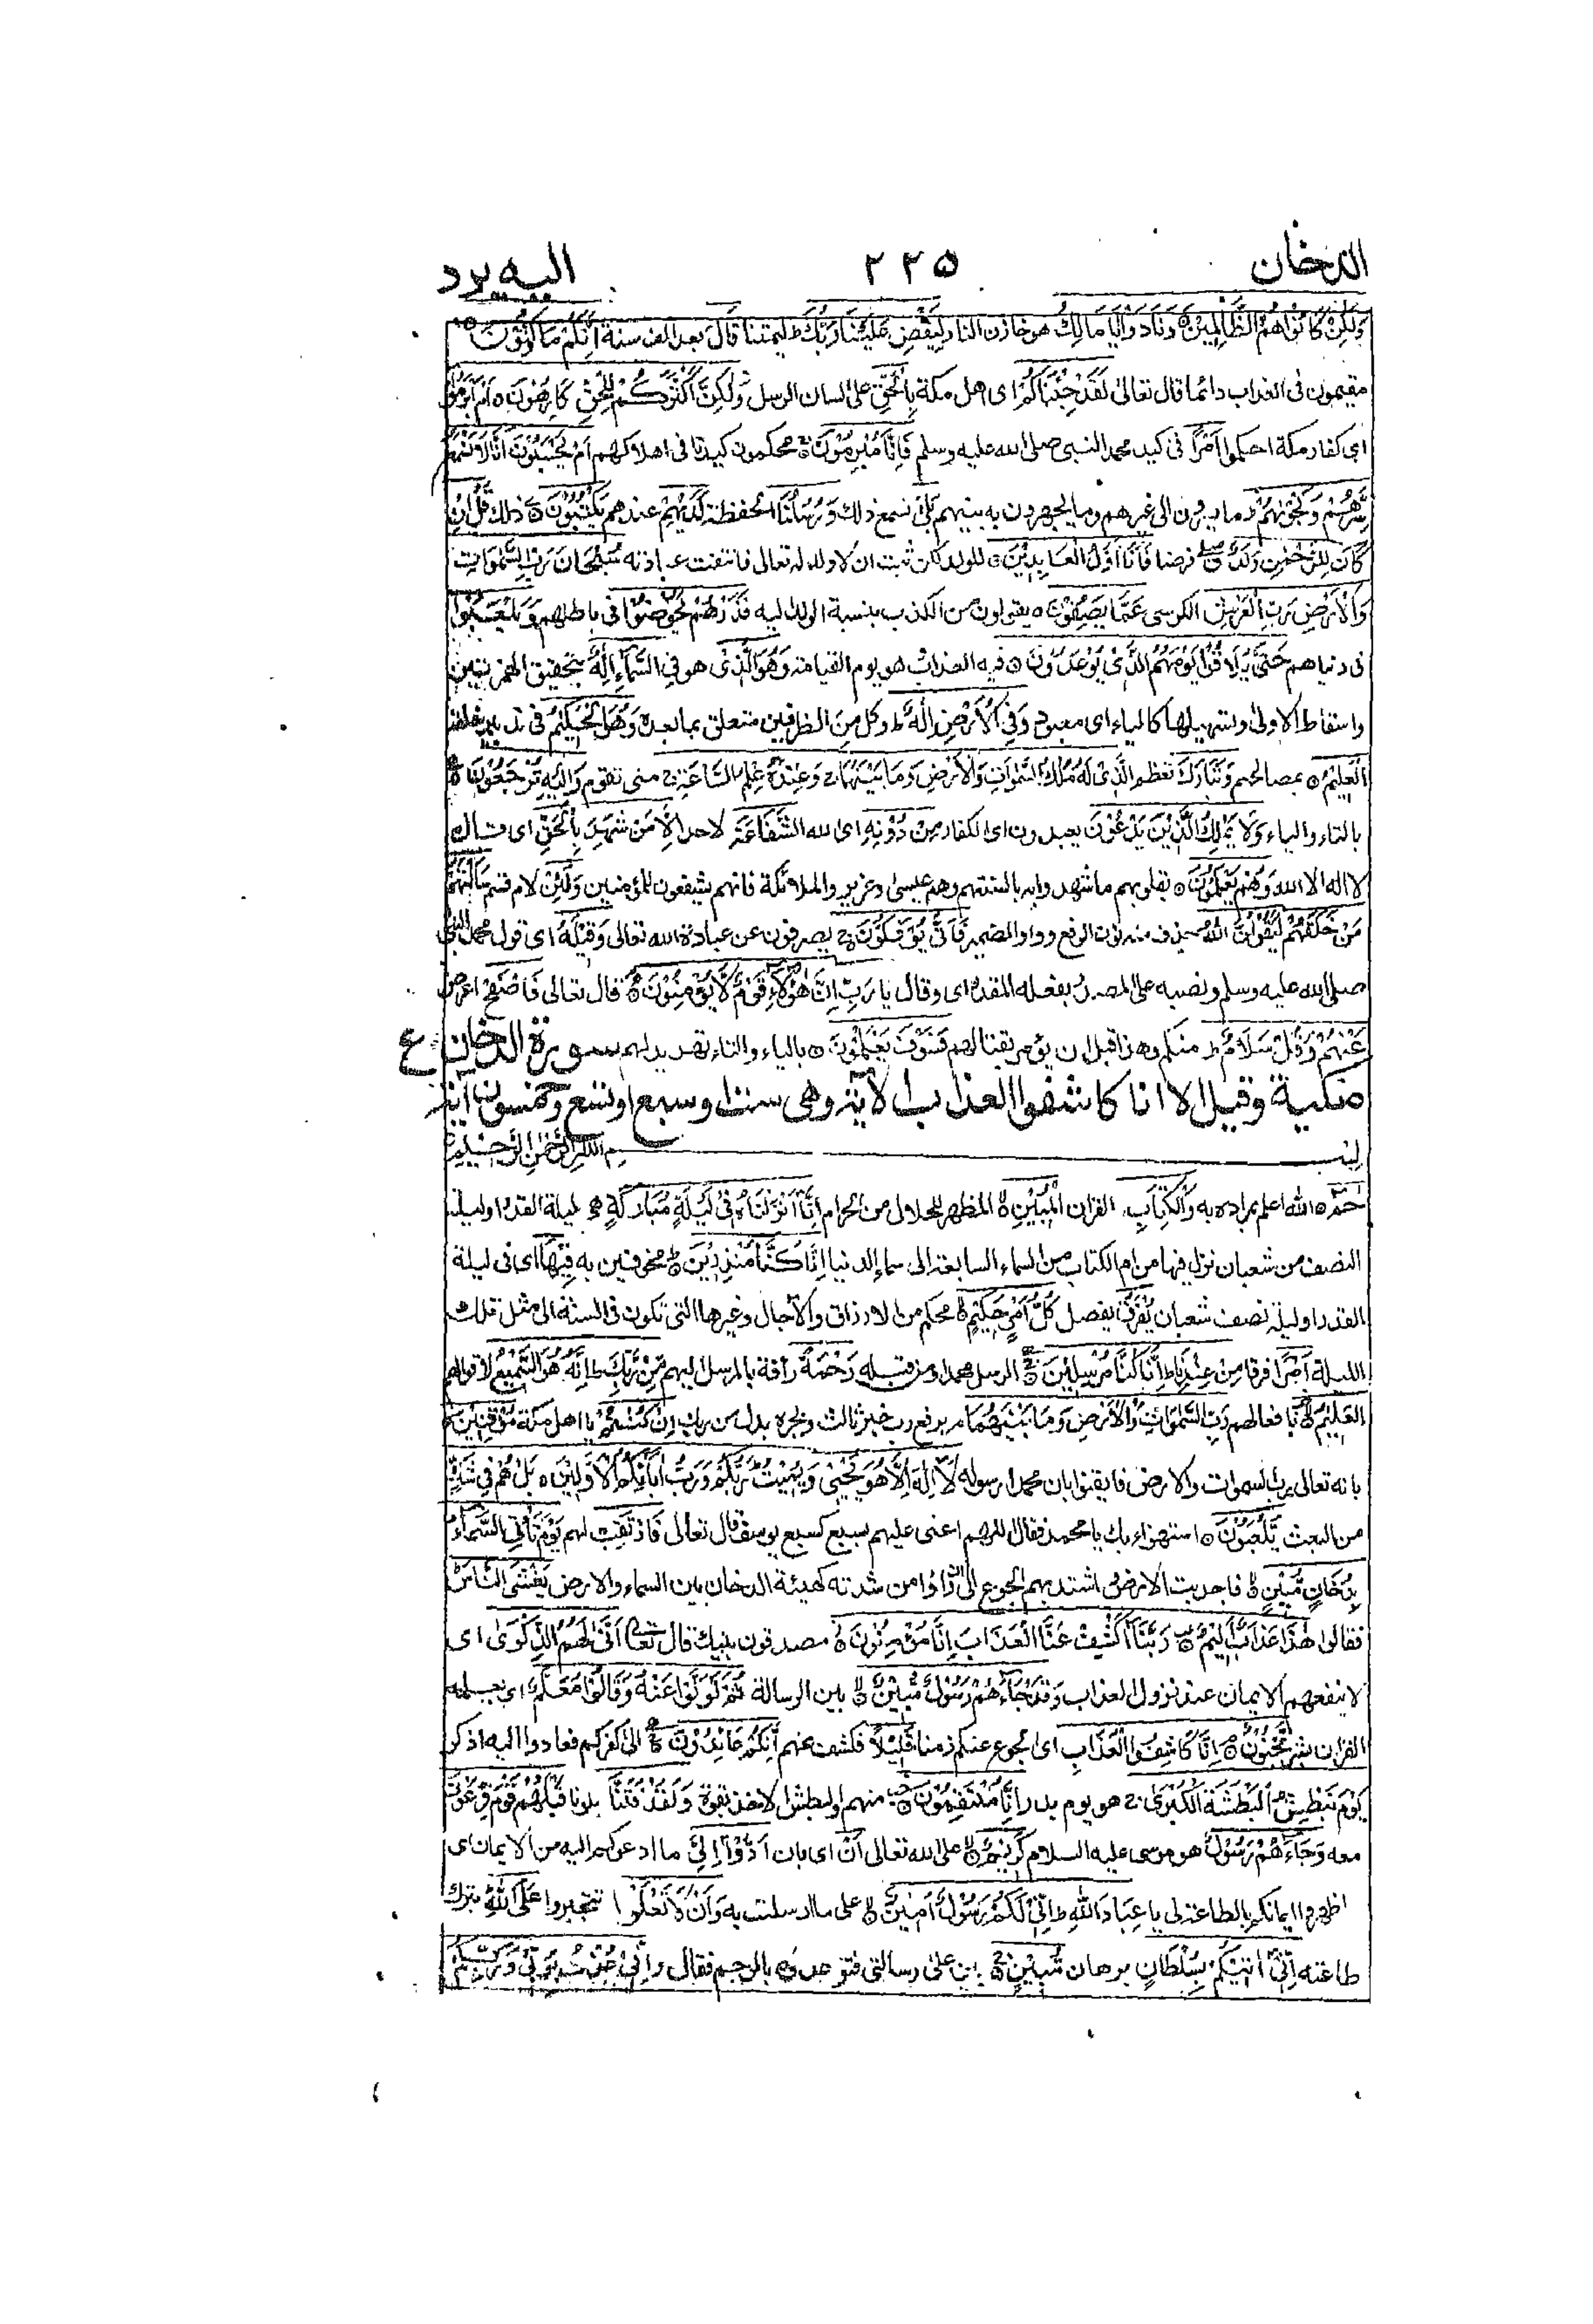 الدخان ٢٢٥ اليه يرد
وَلٰكِنْ كَانُوْا هُمُ الظّٰلِمِيْنَ وَنَادَوْا يَا مَالِكُ هو خازن النار لِيَقْضِ عَلَيْنَا رَبُّكَ ط ليمتنا قَالَ بعد الف سنة اِنَّكُمْ مَاكِثُوْنَ
مقيمون فى العذاب دائما قال تعالىٰ لَقَدْ جِئْنَاكُمْ اى اهل مكة بِالْحَقِّ علىٰ لسان الرسل وَلٰكِنَّ اَكْثَرَكُمْ لِلْحَقِّ كَارِهُوْنَ ٥ اَمْ اَبْرَمُوْا
اى كفار مكة احكموا اَمْرًا فى كيد محمد النبى صلى الله عليه وسلم فَاِنَّا مُبْرِمُوْنَ محكمون كيدنا فى اهلاكهم اَمْ يَحْسَبُوْنَ اَنَّا لَا نَسْمَعُ
سِرَّهُمْ وَنَجْوٰىهُمْ ط ما يسرون الى غيرهم وما يجهرون به بينهم بَلٰى نسمع ذلك وَرُسُلُنَا الحفظة لَدَيْهِمْ عندهم يَكْتُبُوْنَ ذلك قُلْ اِنْ
كَانَ لِلرَّحْمٰنِ وَلَدٌ فرضا فَاَنَا اَوَّلُ الْعَابِدِيْنَ ٥ للولد لكن ثبت ان لا ولد له تعالى فانتفت عبادته سُبْحَانَ رَبِّ السَّمٰوَاتِ
وَالْاَرْضِ رَبِّ الْعَرْشِ الكرسى عَمَّا يَصِفُوْنَ ٥ يقولون من الكذب بنسبة الولد اليه فَذَرْهُمْ يَخُوْضُوْا فى باطلهم وَيَلْعَبُوْا
فى دنياهم حَتّٰى يُلَاقُوْا يَوْمَهُمُ الَّذِىْ يُوْعَدُوْنَ ٥ فيه العذاب هو يوم القيامة وَهُوَ الَّذِىْ هو فِى السَّمَآءِ اِلٰهٌ بتحقيق الهمزتين
واسقاط الاولىٰ وتسهيلها كالياء اى معبود وَفِى الْاَرْضِ اِلٰهٌ ط وكل من الظرفين متعلق بما بعده وَهُوَ الْحَكِيْمُ فى تدبير خلقه
الْعَلِيْمُ ٥ بمصالحهم وَتَبَارَكَ تعظم الَّذِىْ لَهٗ مُلْكُ السَّمٰوَاتِ وَالْاَرْضِ وَمَا بَيْنَهُمَا وَعِنْدَهٗ عِلْمُ السَّاعَةِ متى تقوم وَاِلَيْهِ تُرْجَعُوْنَ ٥
بالتاء والياء وَلَا يَمْلِكُ الَّذِيْنَ يَدْعُوْنَ يعبدون اى الكفار مِنْ دُوْنِهٖ اى الله الشَّفَاعَةَ لاحد اِلَّا مَنْ شَهِدَ بِالْحَقِّ اى قال
لا اله الا الله وَهُمْ يَعْلَمُوْنَ ٥ بقلوبهم ما شهدوا به بالسنتهم وهم عيسىٰ وعزير والملائكة فانهم يشفعون للمؤمنين وَلَئِنْ لام قسم سَاَلْتَهُمْ
مَنْ خَلَقَهُمْ لَيَقُوْلُنَّ اللّٰهُ حذف منه نون الرفع وواو الضمير فَاَنّٰى يُؤْفَكُوْنَ يصرفون عن عبادة الله تعالى وَقِيْلِهٖ اى قول محمد النبى
صلى الله عليه وسلم ونصبه على المصدر بفعله المقدر اى وقال يَا رَبِّ اِنَّ هٰٓؤُلَآءِ قَوْمٌ لَّا يُؤْمِنُوْنَ ٥ قال تعالى فَاصْفَحْ اعرض
عَنْهُمْ وَقُلْ سَلَامٌ ط منكم وهذا قبل ان يؤمر بقتالهم فَسَوْفَ يَعْلَمُوْنَ ٥ بالياء والتاء تهديد لهم سورة الدخان ع
مكية وقيل الا انا كاشفوا العذاب الآية وهى ست او سبع او تسع وخمسون اية
بسم الله الرحمن الرحيم
حٰمٓ ٥ الله اعلم بمراده به وَالْكِتَابِ القران الْمُبِيْنِ ٥ المظهر للحلال من الحرام اِنَّا اَنْزَلْنَاهُ فِىْ لَيْلَةٍ مُّبَارَكَةٍ هى ليلة القدر او ليلة
النصف من شعبان نزل فيها من ام الكتاب من السماء السابعة الى سماء الدنيا اِنَّا كُنَّا مُنْذِرِيْنَ ٥ مخوفين به فِيْهَا اى فى ليلة
القدر او ليلة نصف شعبان يُفْرَقُ يفصل كُلُّ اَمْرٍ حَكِيْمٍ ٥ محكم من الارزاق والآجال وغيرها التى تكون فى السنة الى مثل تلك
الليلة اَمْرًا فرقا مِّنْ عِنْدِنَا ط اِنَّا كُنَّا مُرْسِلِيْنَ ٥ الرسل محمدا ومن قبله رَحْمَةً رأفة بالمرسل اليهم مِّنْ رَّبِّكَ ط اِنَّهٗ هُوَ السَّمِيْعُ لاقوالهم
الْعَلِيْمُ ٥ بافعالهم رَبِّ السَّمٰوَاتِ وَالْاَرْضِ وَمَا بَيْنَهُمَا برفع رب خبر ثالث وبجره بدل من ربك اِنْ كُنْتُمْ يا اهل مكة مُّوْقِنِيْنَ ٥
بانه تعالى رب السموات والارض فايقنوا بان محمدا رسوله لَا اِلٰهَ اِلَّا هُوَ يُحْيِىْ وَيُمِيْتُ رَبُّكُمْ وَرَبُّ اٰبَآئِكُمُ الْاَوَّلِيْنَ ٥ بَلْ هُمْ فِىْ شَكٍّ
من البعث يَّلْعَبُوْنَ ٥ استهزاء بك يا محمد فقال اللهم اعنى عليهم بسبع كسبع يوسف قال تعالى فَارْتَقِبْ لهم يَوْمَ تَأْتِى السَّمَآءُ
بِدُخَانٍ مُّبِيْنٍ ٥ فاجدبت الارض واشتد بهم الجوع الى ان رأوا من شدته كهيئة الدخان بين السماء والارض يَغْشَى النَّاسَ
فقالوا هٰذَا عَذَابٌ اَلِيْمٌ ٥ رَبَّنَا اكْشِفْ عَنَّا الْعَذَابَ اِنَّا مُؤْمِنُوْنَ ٥ مصدقون بنبيك قال تعالى اَنّٰى لَهُمُ الذِّكْرٰى اى
لا ينفعهم الايمان عند نزول العذاب وَقَدْ جَآءَهُمْ رَسُوْلٌ مُّبِيْنٌ ٥ بين الرسالة ثُمَّ تَوَلَّوْا عَنْهُ وَقَالُوْا مُعَلَّمٌ اى يعلمه
القران بشر مَّجْنُوْنٌ ٥ اِنَّا كَاشِفُوا الْعَذَابِ اى الجوع عنكم زمنا قَلِيْلًا فكشف عنهم اِنَّكُمْ عَائِدُوْنَ ٥ الى كفركم فعادوا اليه اذكر
يَوْمَ نَبْطِشُ الْبَطْشَةَ الْكُبْرٰى هو يوم بدر اِنَّا مُنْتَقِمُوْنَ ٥ منهم والبطش الاخذ بقوة وَلَقَدْ فَتَنَّا بلونا قَبْلَهُمْ قَوْمَ فِرْعَوْنَ
معه وَجَآءَهُمْ رَسُوْلٌ هو موسى عليه السلام كَرِيْمٌ ٥ على الله تعالى اَنْ اى بان اَدُّوْآ اِلَىَّ ما ادعوكم اليه من الايمان اى
اظهروا ايمانكم بالطاعة لى يا عِبَادَ اللّٰهِ ط اِنِّىْ لَكُمْ رَسُوْلٌ اَمِيْنٌ ٥ على ما ارسلت به وَاَنْ لَّا تَعْلُوْا تتجبروا عَلَى اللّٰهِ بترك
طاعته اِنِّىْ اٰتِيْكُمْ بِسُلْطَانٍ برهان مُّبِيْنٍ ٥ بين علىٰ رسالتى فتوعدوه بالرجم فقال وَاِنِّىْ عُذْتُ بِرَبِّىْ وَرَبِّكُمْ